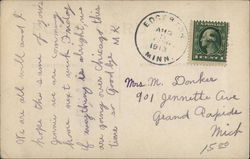 We are all well and I
hope this is same of you
Jennie we are coming
home next week Friday
if everything is alright, we
are going over Chicago this
time so Good bye M.K
EDGERTON
AUG
1913
MINN.
Mrs. M. Donker
901 Jennette Ave
Grand Rapids
Mich